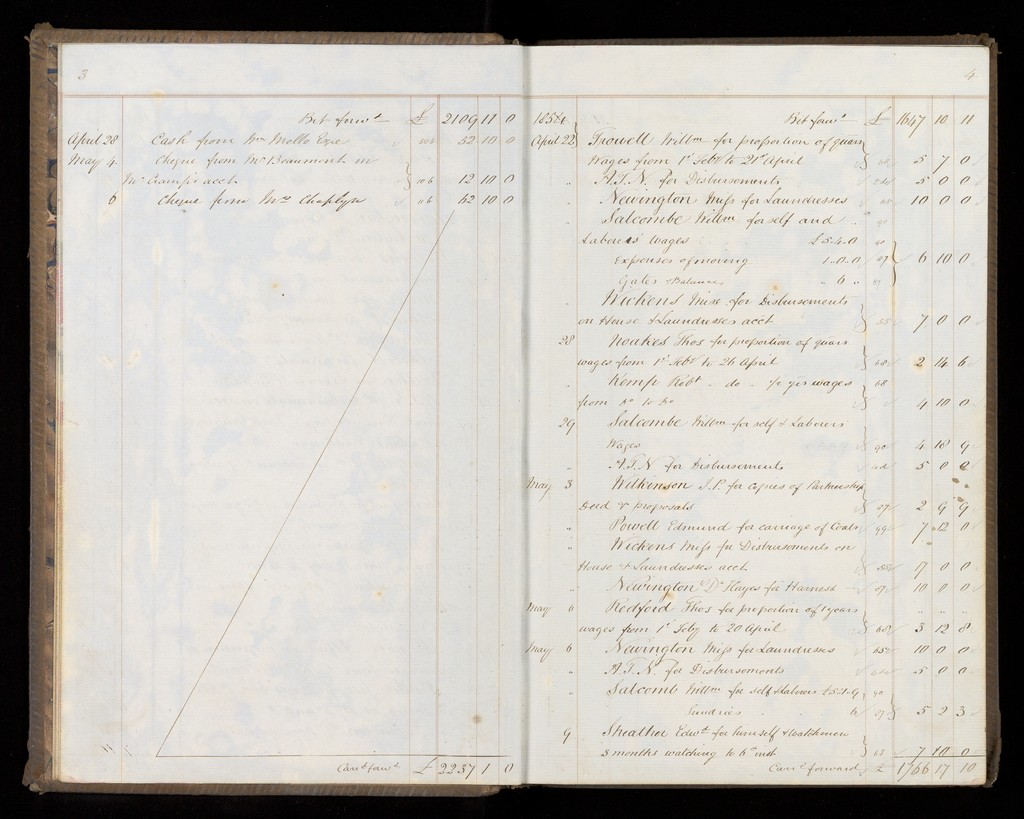 3
Bot forwd £ 2109 11 0
April 28 Cash from Wm Mollo Exr 52 10 0
May 4 Cheque from Mr Beaumont in
Mr Cramp's acct 12 10 0
6 Cheque from Mrs Chaplyn 62 10 0
Card forwd £ 2237 1 0
4
1854 Bot forwd £ 1647 10 11
April 22 Trowell Willm for proportion of years
Wages from 1st Feby to 21st April 5 7 0
" A.T.N. for Disbursements 5 0 0
" Newington Miss for Laundresses 65 10 0 0
" Salcombe Willm for self and 90
Laborers' Wages £5.4.0 90
Expenses of moving 1.0.0 97 6 10 0
Gates & Balance " 6 "
" Wickens Miss for Disbursements
on House & Laundresses acct 55 7 0 0
28 Noakes Thos for proportion of years
wages from 1st Feby to 26 April 68 2 14 6
" Kemp Robt - do - yrs wages 68
from do to do 4 10 0
29 Salcombe Willm for self & Laborers
Wages 90 4 18 9
" A.T.N for Disbursements 5 0 0
May 3 Wilkinson J.P. for copies of Partnership
Deed & proposals 97 2 9 9
" Powell Edmund for carriage of Coals 99 7 12 0
" Wickens Miss for Disbursements on
House & Laundresses acct 55 17 0 0
" Newington Dr Hayes for Harness 97 10 0 0
May 6 Redford Thos for proportion of 1 years " " "
wages from 1st Feby to 20 April 68 3 12 8
May 6 Newington Miss for Laundresses 65 10 0 0
" A.T.N. for Disbursements 5 0 0
" Salcomb Willm for self & Laborers 90
Sundries 97 5 2 3
9 Sheather Edwd for himself & watchman
3 months watching to 6th inst 68 7 10 0
Card forward £ 1766 17 10